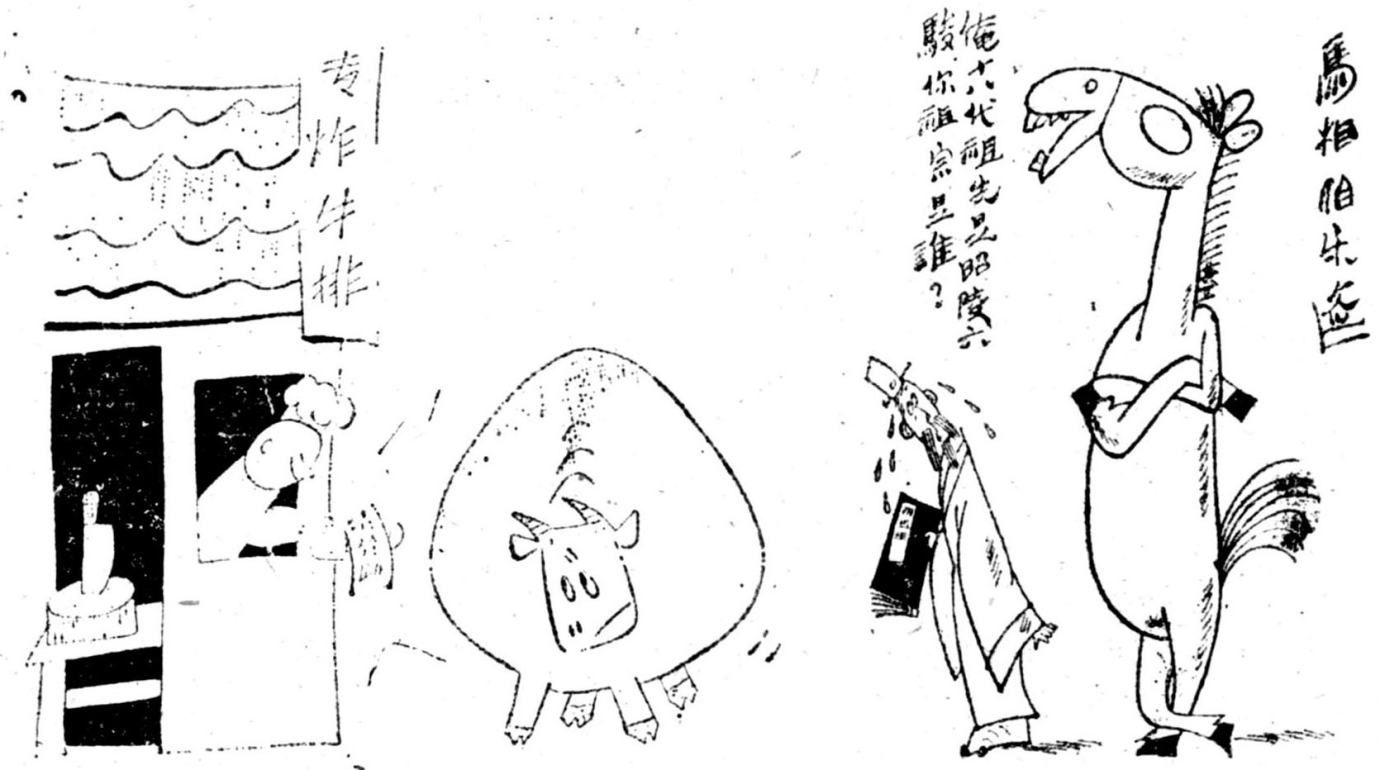 馬相伯乐
俺十八代祖先是昭陵六
駿,你祖宗是誰?
专炸牛排